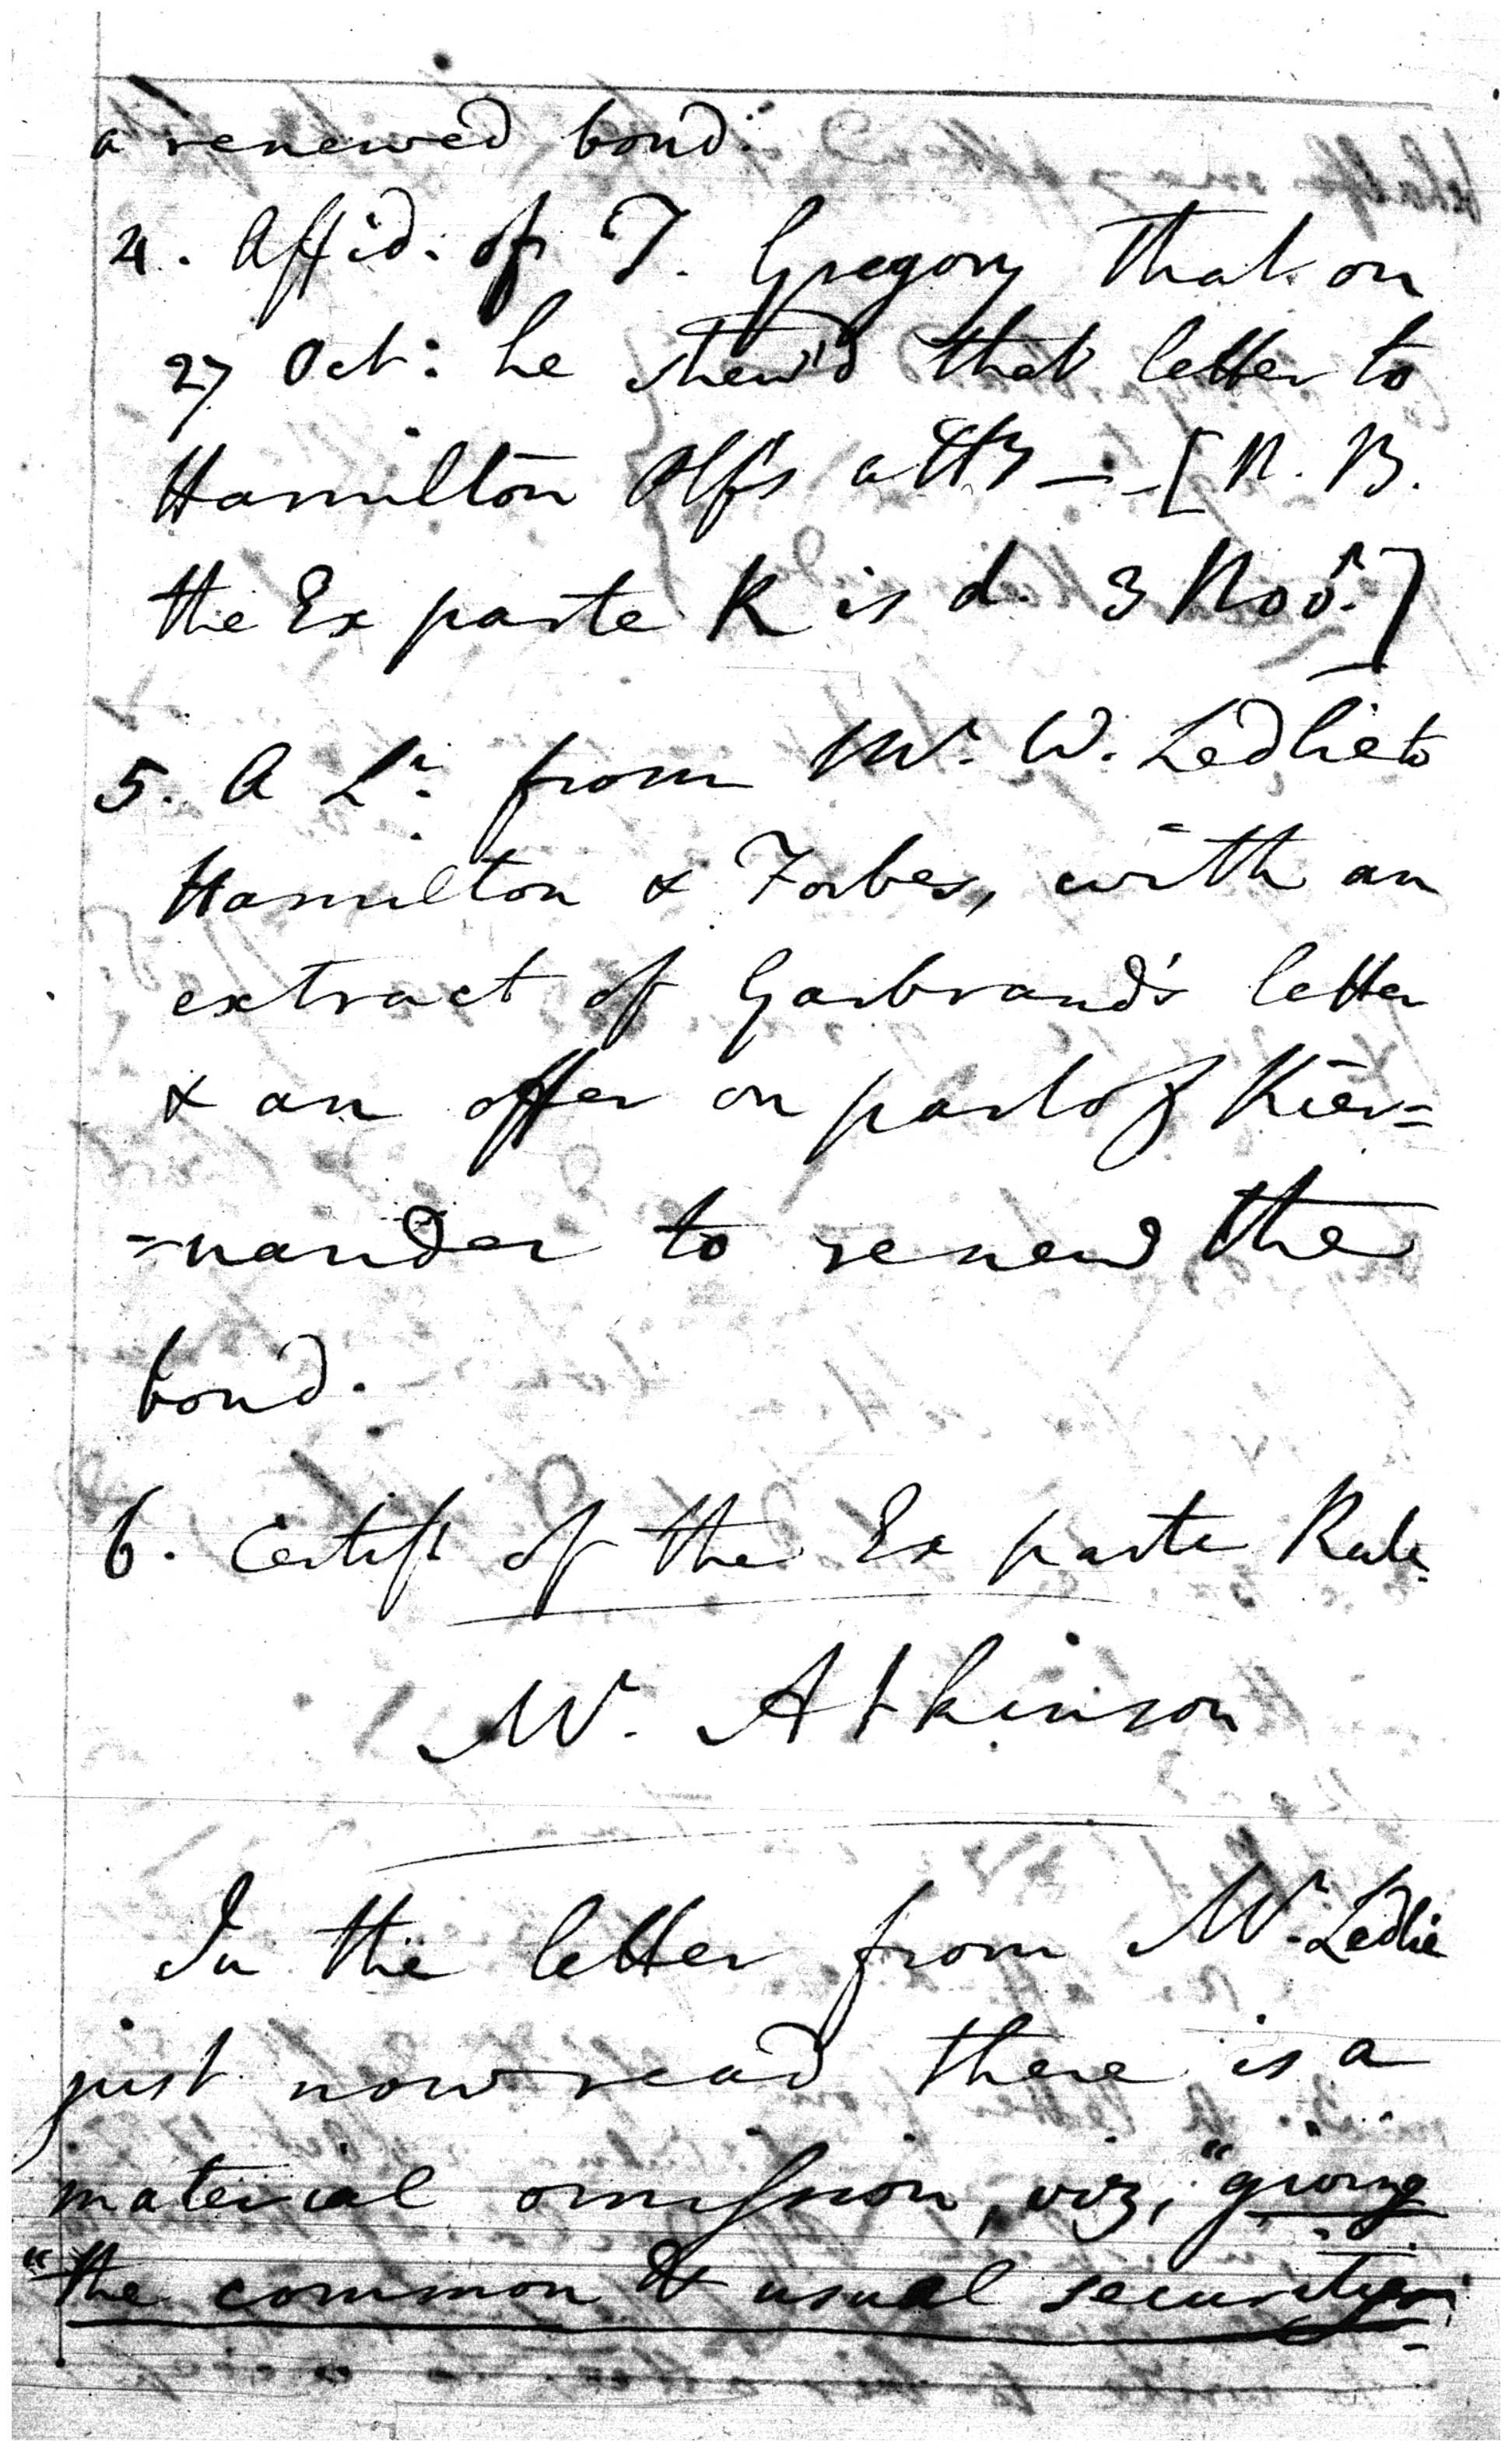 a renewed bond.
4. Affid. of T. Gregory that on
27 Oct: he shew'd that letter to
Hamilton Plf's atty — [N. B.
the Ex parte R is d. 3 Nov.]
5. A Lr. from Mr. W. Ledlie to
Hamilton & Forbes, with an
extract of Garbrand's letter
& an offer on part of Kier=
=nander to renew the
bond.
6. Certift of the Ex parte Rule.
Mr. Atkinson
In the letter from Mr. Ledlie
just now read there is a
material omission, viz, "giving
"the common & usual securities